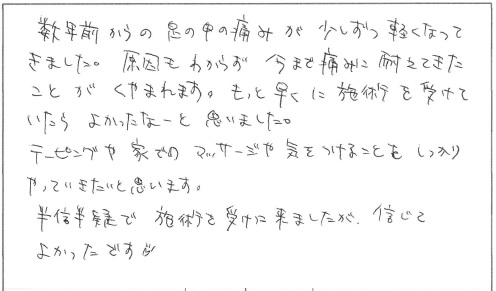 数年前からの足の甲の痛みが少しずつ軽くなって
きました。原因もわからず今まで痛みに耐えてきた
ことがくやまれます。もっと早くに施術を受けて
いたらよかったなーと思いました。
テーピングや家でのマッサージや気をつけることもしっかり
やっていきたいと思います。
半信半疑で施術を受けに来ましたが、信じて
よかったです